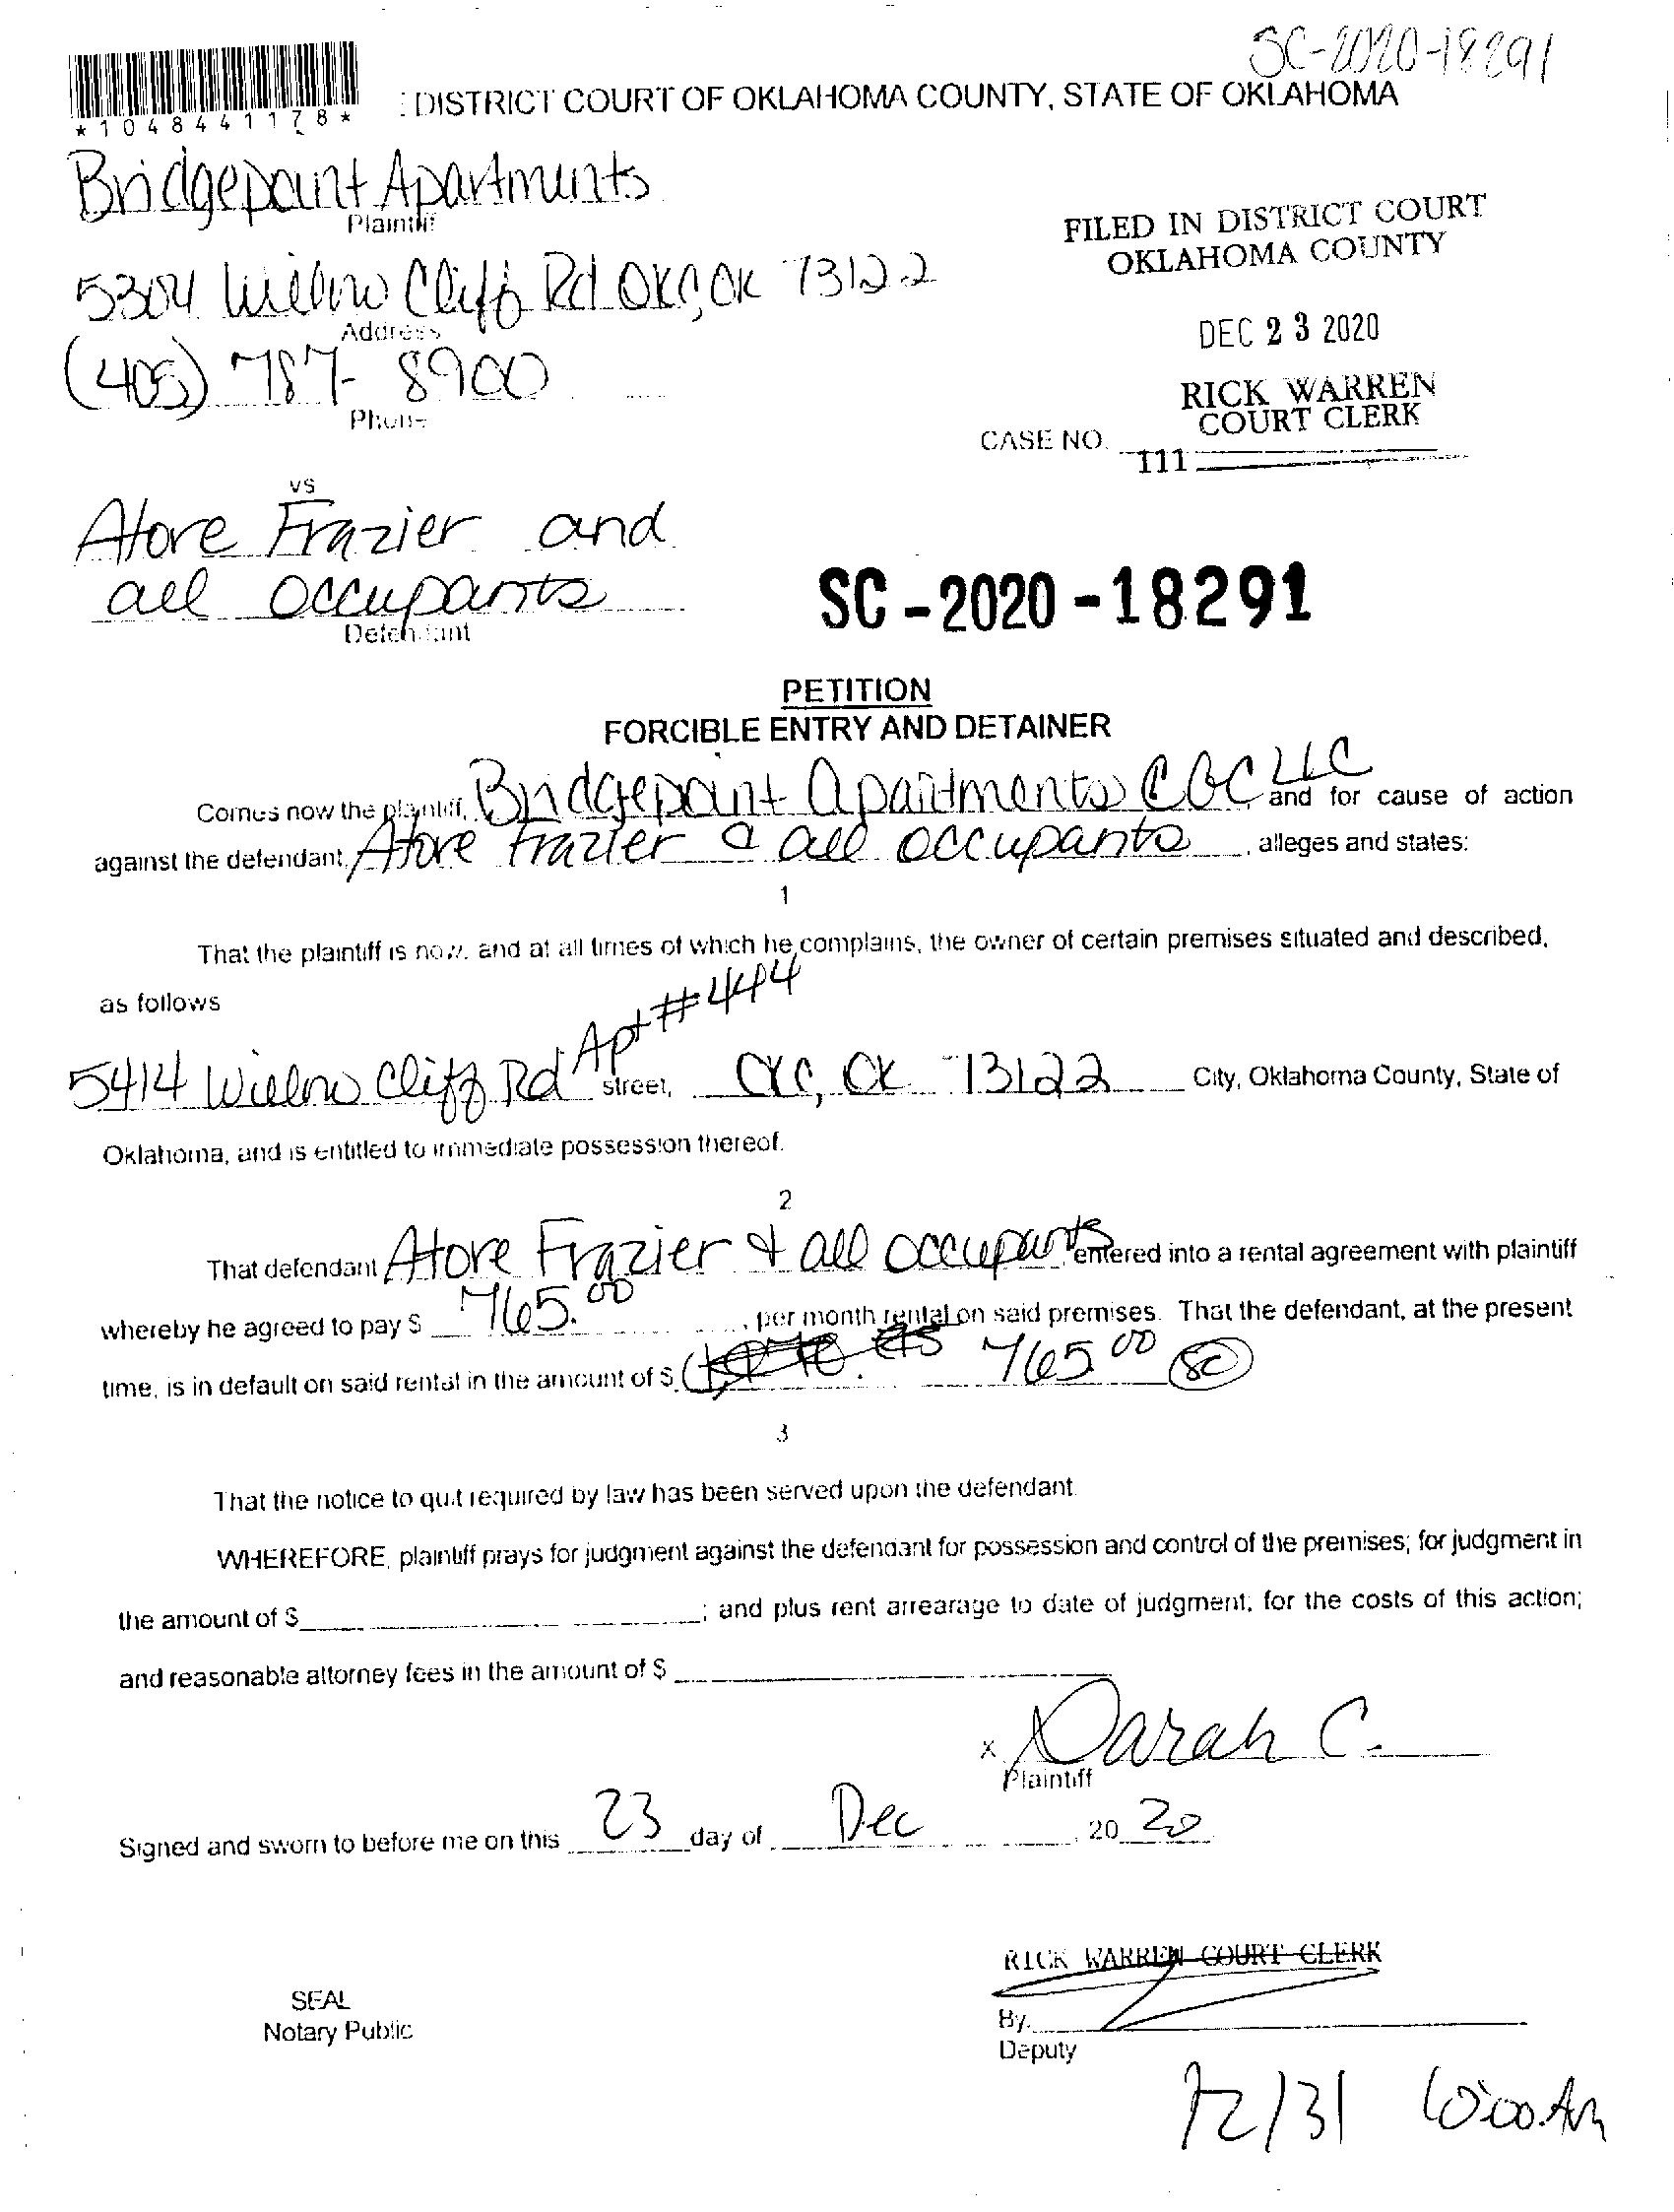 SC-2020-18291
*1048441178*
: DISTRICT COURT OF OKLAHOMA COUNTY, STATE OF OKLAHOMA
Bridgepoint Apartments
Plaintiff
5304 Willow Cliff Rd OKC, OK 73122
Address
(405) 787-8900
Phone
FILED IN DISTRICT COURT
OKLAHOMA COUNTY
DEC 23 2020
RICK WARREN
COURT CLERK
CASE NO.
111
vs
Atore Frazier and
all occupants
Defendant
SC-2020-18291
PETITION
FORCIBLE ENTRY AND DETAINER
Comes now the plaintiff, Bridgepoint Apartments CBC LLC and for cause of action
against the defendant, Atore Frazier & all occupants, alleges and states:
1
That the plaintiff is now, and at all times of which he complains, the owner of certain premises situated and described,
as follows
5414 Willow Cliff Rd Apt #444 street, OKC, OK 73122 City, Oklahoma County, State of
Oklahoma, and is entitled to immediate possession thereof.
2
That defendant Atore Frazier & all occupants entered into a rental agreement with plaintiff
whereby he agreed to pay $ 765.00, per month rental on said premises. That the defendant, at the present
time, is in default on said rental in the amount of $ 765 00 SC
3
That the notice to quit required by law has been served upon the defendant.
WHEREFORE, plaintiff prays for judgment against the defendant for possession and control of the premises; for judgment in
the amount of $ ; and plus rent arrearage to date of judgment; for the costs of this action;
and reasonable attorney fees in the amount of $
x Sarah C.
Plaintiff
Signed and sworn to before me on this 23 day of Dec, 20 20
RICK WARREN COURT CLERK
SEAL
Notary Public
By.
Deputy
12/31 10:00 AM